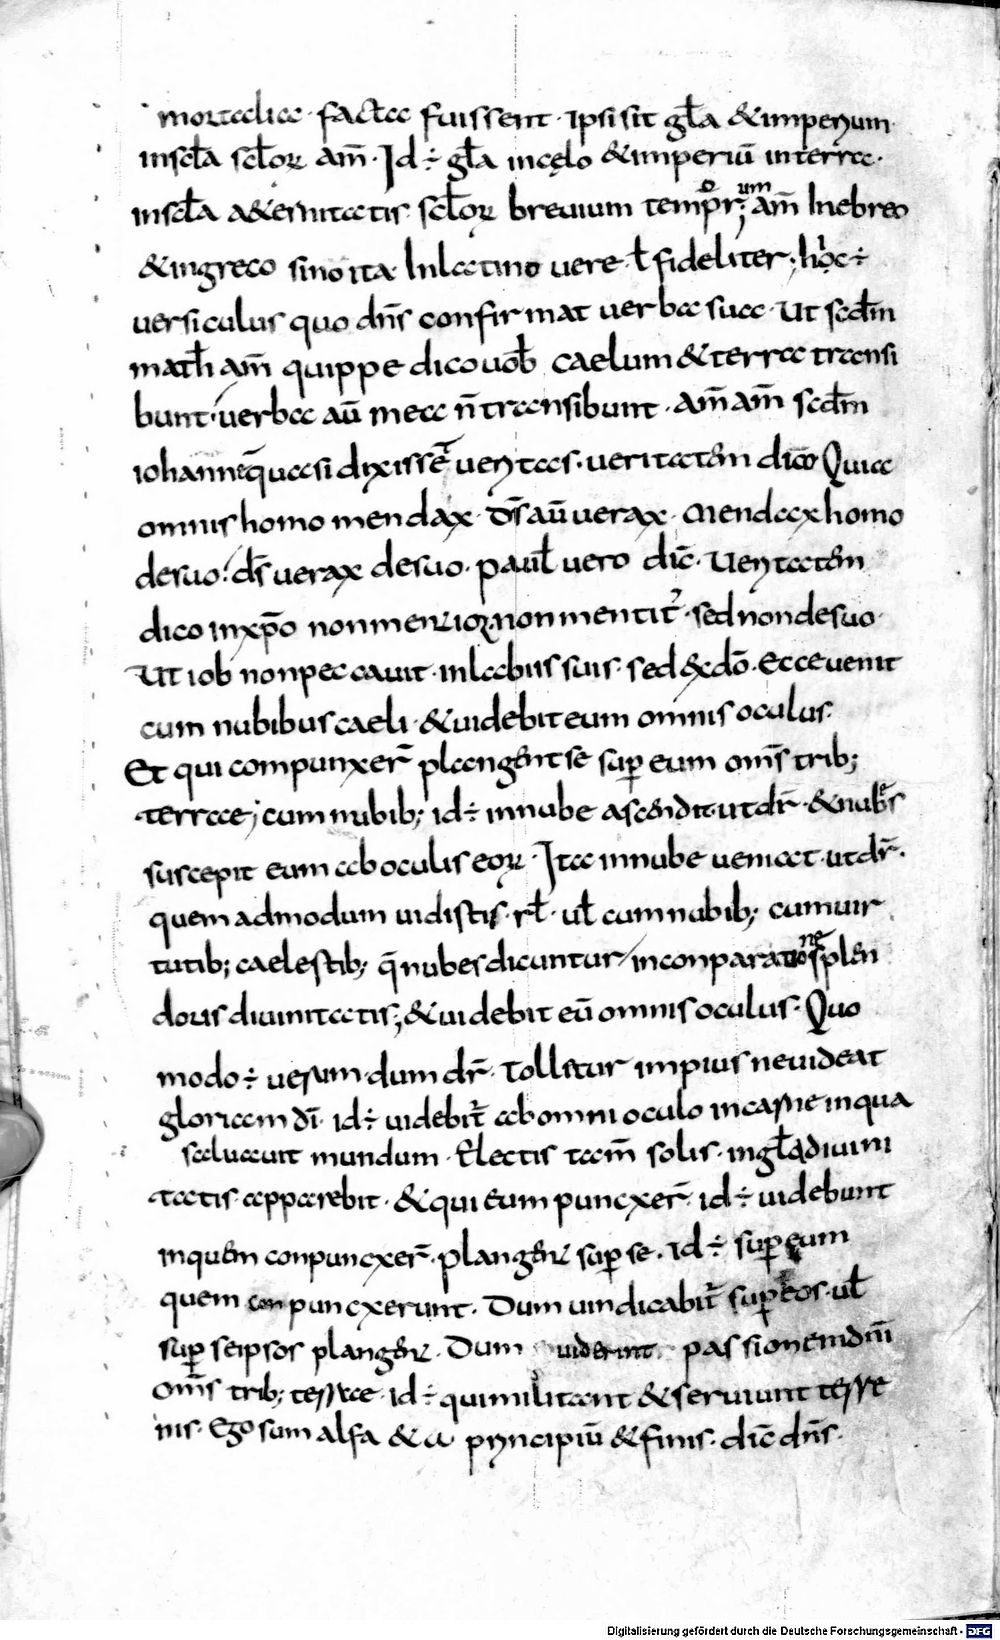 mortalia · facta fuissent · Ipsi sit gl̄a &imperium
insc̄la sc̄lorꝝ am̄ · Id ÷ gl̄a incęlo &imperiū interra ·
insc̄la a&ernitatis · sc̄lorꝝ breuium tempor; am̄ Inebreo
&ingreco sinoita · Inlatino uere · ł fideliter ; hoc ÷
uersiculus quo dn̄s confirmat uerba sua · Ut scdm̄
math̄ am̄ quippe dico uob̄ caelum &terra transi
bunt · uerba aū mea n̄ transibunt · am̄ am̄ scdm̄
iohanne q̄uasi dixissē ueritas · ueritatēm dico Quia
omnis homo mendax · Dr̄ aū uerax · Mendax homo
desuo · dr̄ uerax desuo · paul̄ uero dic̄ · Ueritatēm
dico inxp̄o nonmentior · non mentit̄ · sed nondesuo ·
Ut iob nonpeccauit · inlabiis suis · sed &xdō · Ecce uenit
cum nubibus caeli · &uidebit eum omnis oculus ·
Et qui compunxer̄ plangēnt se sup̄ eum om̄s trib;
terrae; cum nubib; id ÷ innube ascendit · utdr̄ · &nubēs
suscepit eum ab oculis eorꝝ · Ita innube ueniat · utdr̄ ·
quem admodum uidistis · rl̄ · ul̄ cum nubib; cum uir
tutib; caelestib; q̄ nubes dicuntur inconparatione splen
doris diuinitatis; &uidebit eū omnis oculus · Quo
modo ÷ uerum · dum dr̄ · Tolletur impius neuideat
gloriam dī · id ÷ uidebit̄ ab omni oculo incarne inqua
saluauit mundum · Electis tam̄ solis · ingl̄a diuini
tatis apparebit · &qui eum puncxer̄ · id ÷ uidebunt
inquem conpuncxer̄ · plangent sup̄ se · id ÷ sup̄ eum
quem conpuncxerunt · Dum uindicabit̄ sup̄ eos · ul̄
sup̄ seipsos plangent · Dum uiderint passionem dn̄i
om̄s trib; terrae · id ÷ quimilitant &seruiunt terre
nis · Ego sum alfa &ω principiū &finis · dic̄ dn̄s ·
Digitalisierung gefördert durch die Deutsche Forschungsgemeinschaft · DFG